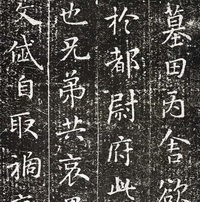 墓田丙舍欲
於都尉府此
也兄弟共哀
文岱自取禍